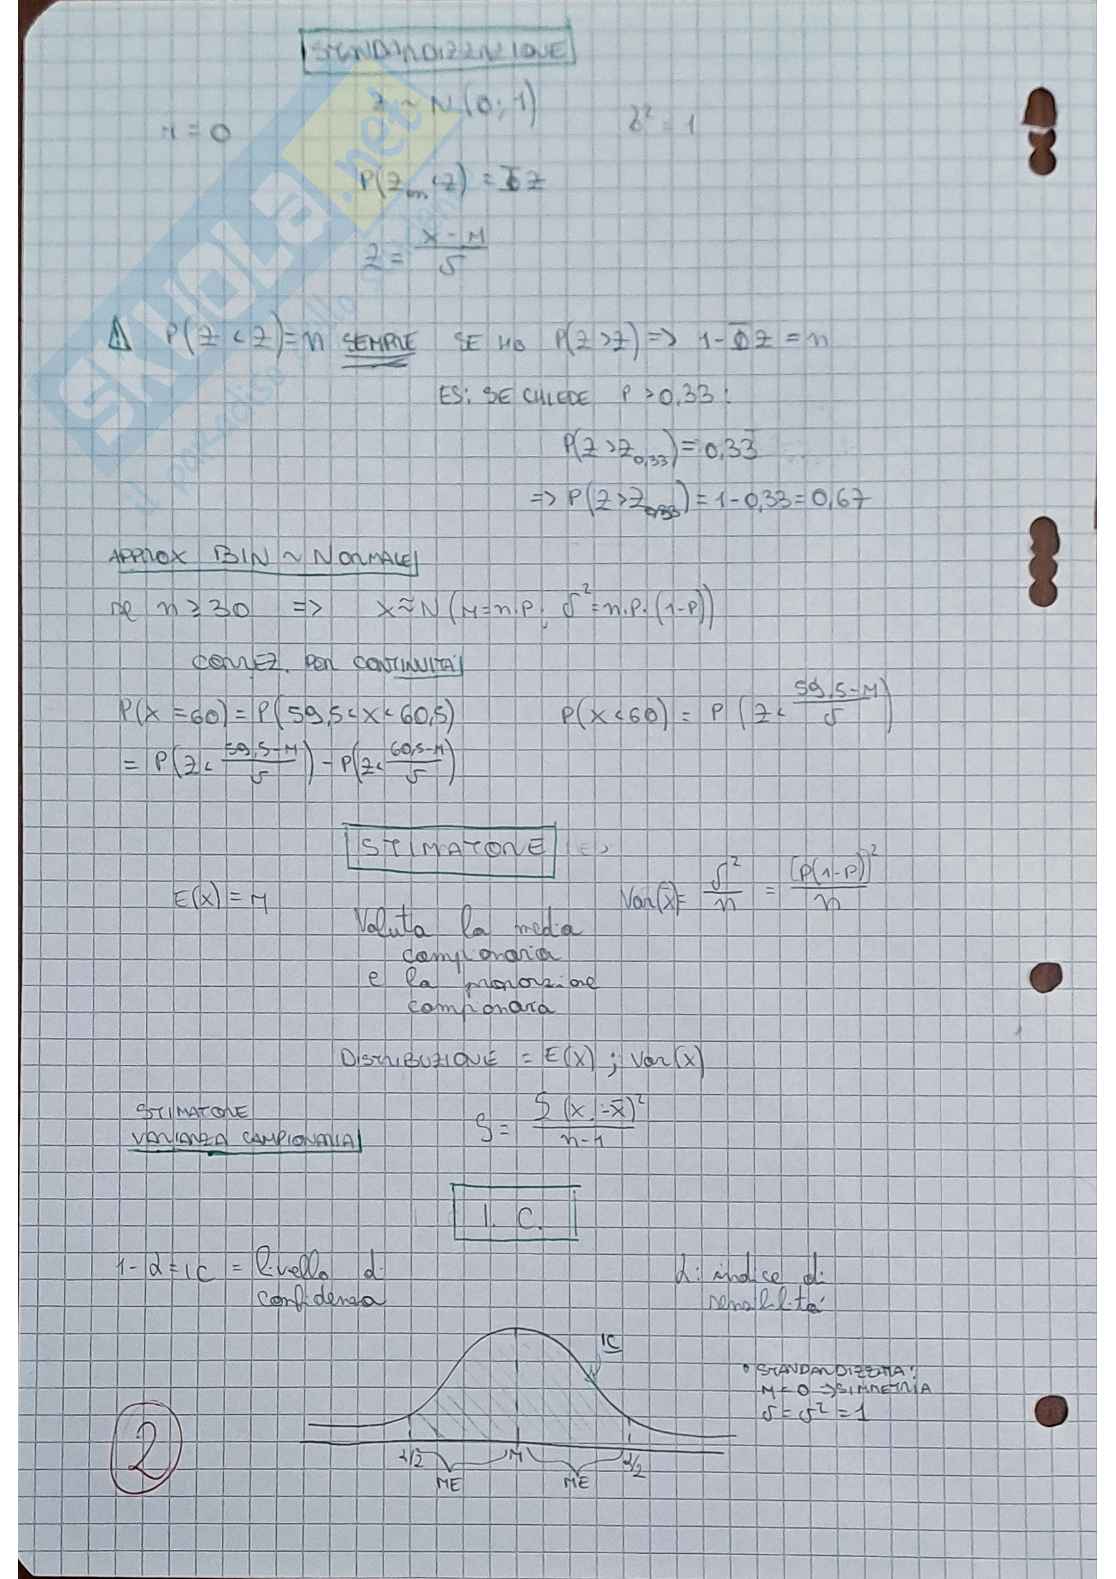 STANDARDIZZAZIONE
Z ~ N(0; 1)
M = 0
σ² = 1
P(Z < Z) = Φ Z
Z = (X - M)/σ
⚠ P(Z < Z) = n SEMPRE SE HO P(Z > Z) => 1 - Φ Z = n
ES: SE CHIEDE P > 0,33:
P(Z > Z0,33) = 0,33
=> P(Z > Z0,33) = 1 - 0,33 = 0,67
APPROX BIN ~ NORMALE
se n ≥ 30 => X ≈ N(M = n.P; σ² = n.P.(1-P))
CORREZ. PER CONTINUITÀ
P(X = 60) = P(59,5 < X < 60,5)
P(X < 60) = P(Z < (59,5 - M)/σ)
= P(Z < (59,5 - M)/σ) - P(Z < (60,5 - M)/σ)
STIMATORE
E(X) = M
Var(X̄) = σ²/n = (P(1-P))²/n
Valuta la media
campionaria
e la proporzione
campionara
DISTRIBUZIONE = E(X) ; Var(X)
STIMATORE
VARIANZA CAMPIONARIA
S = Σ(x - x̄)²/(n - 1)
I. C.
1 - α = IC = livello di
confidenza
α: indice di
sensibilità
IC
• STANDARDIZZATA:
M = 0 => SIMMETRIA
σ = σ² = 1
α/2 M α/2
ME ME
2
SKUOLA.net
il paradiso dello studente